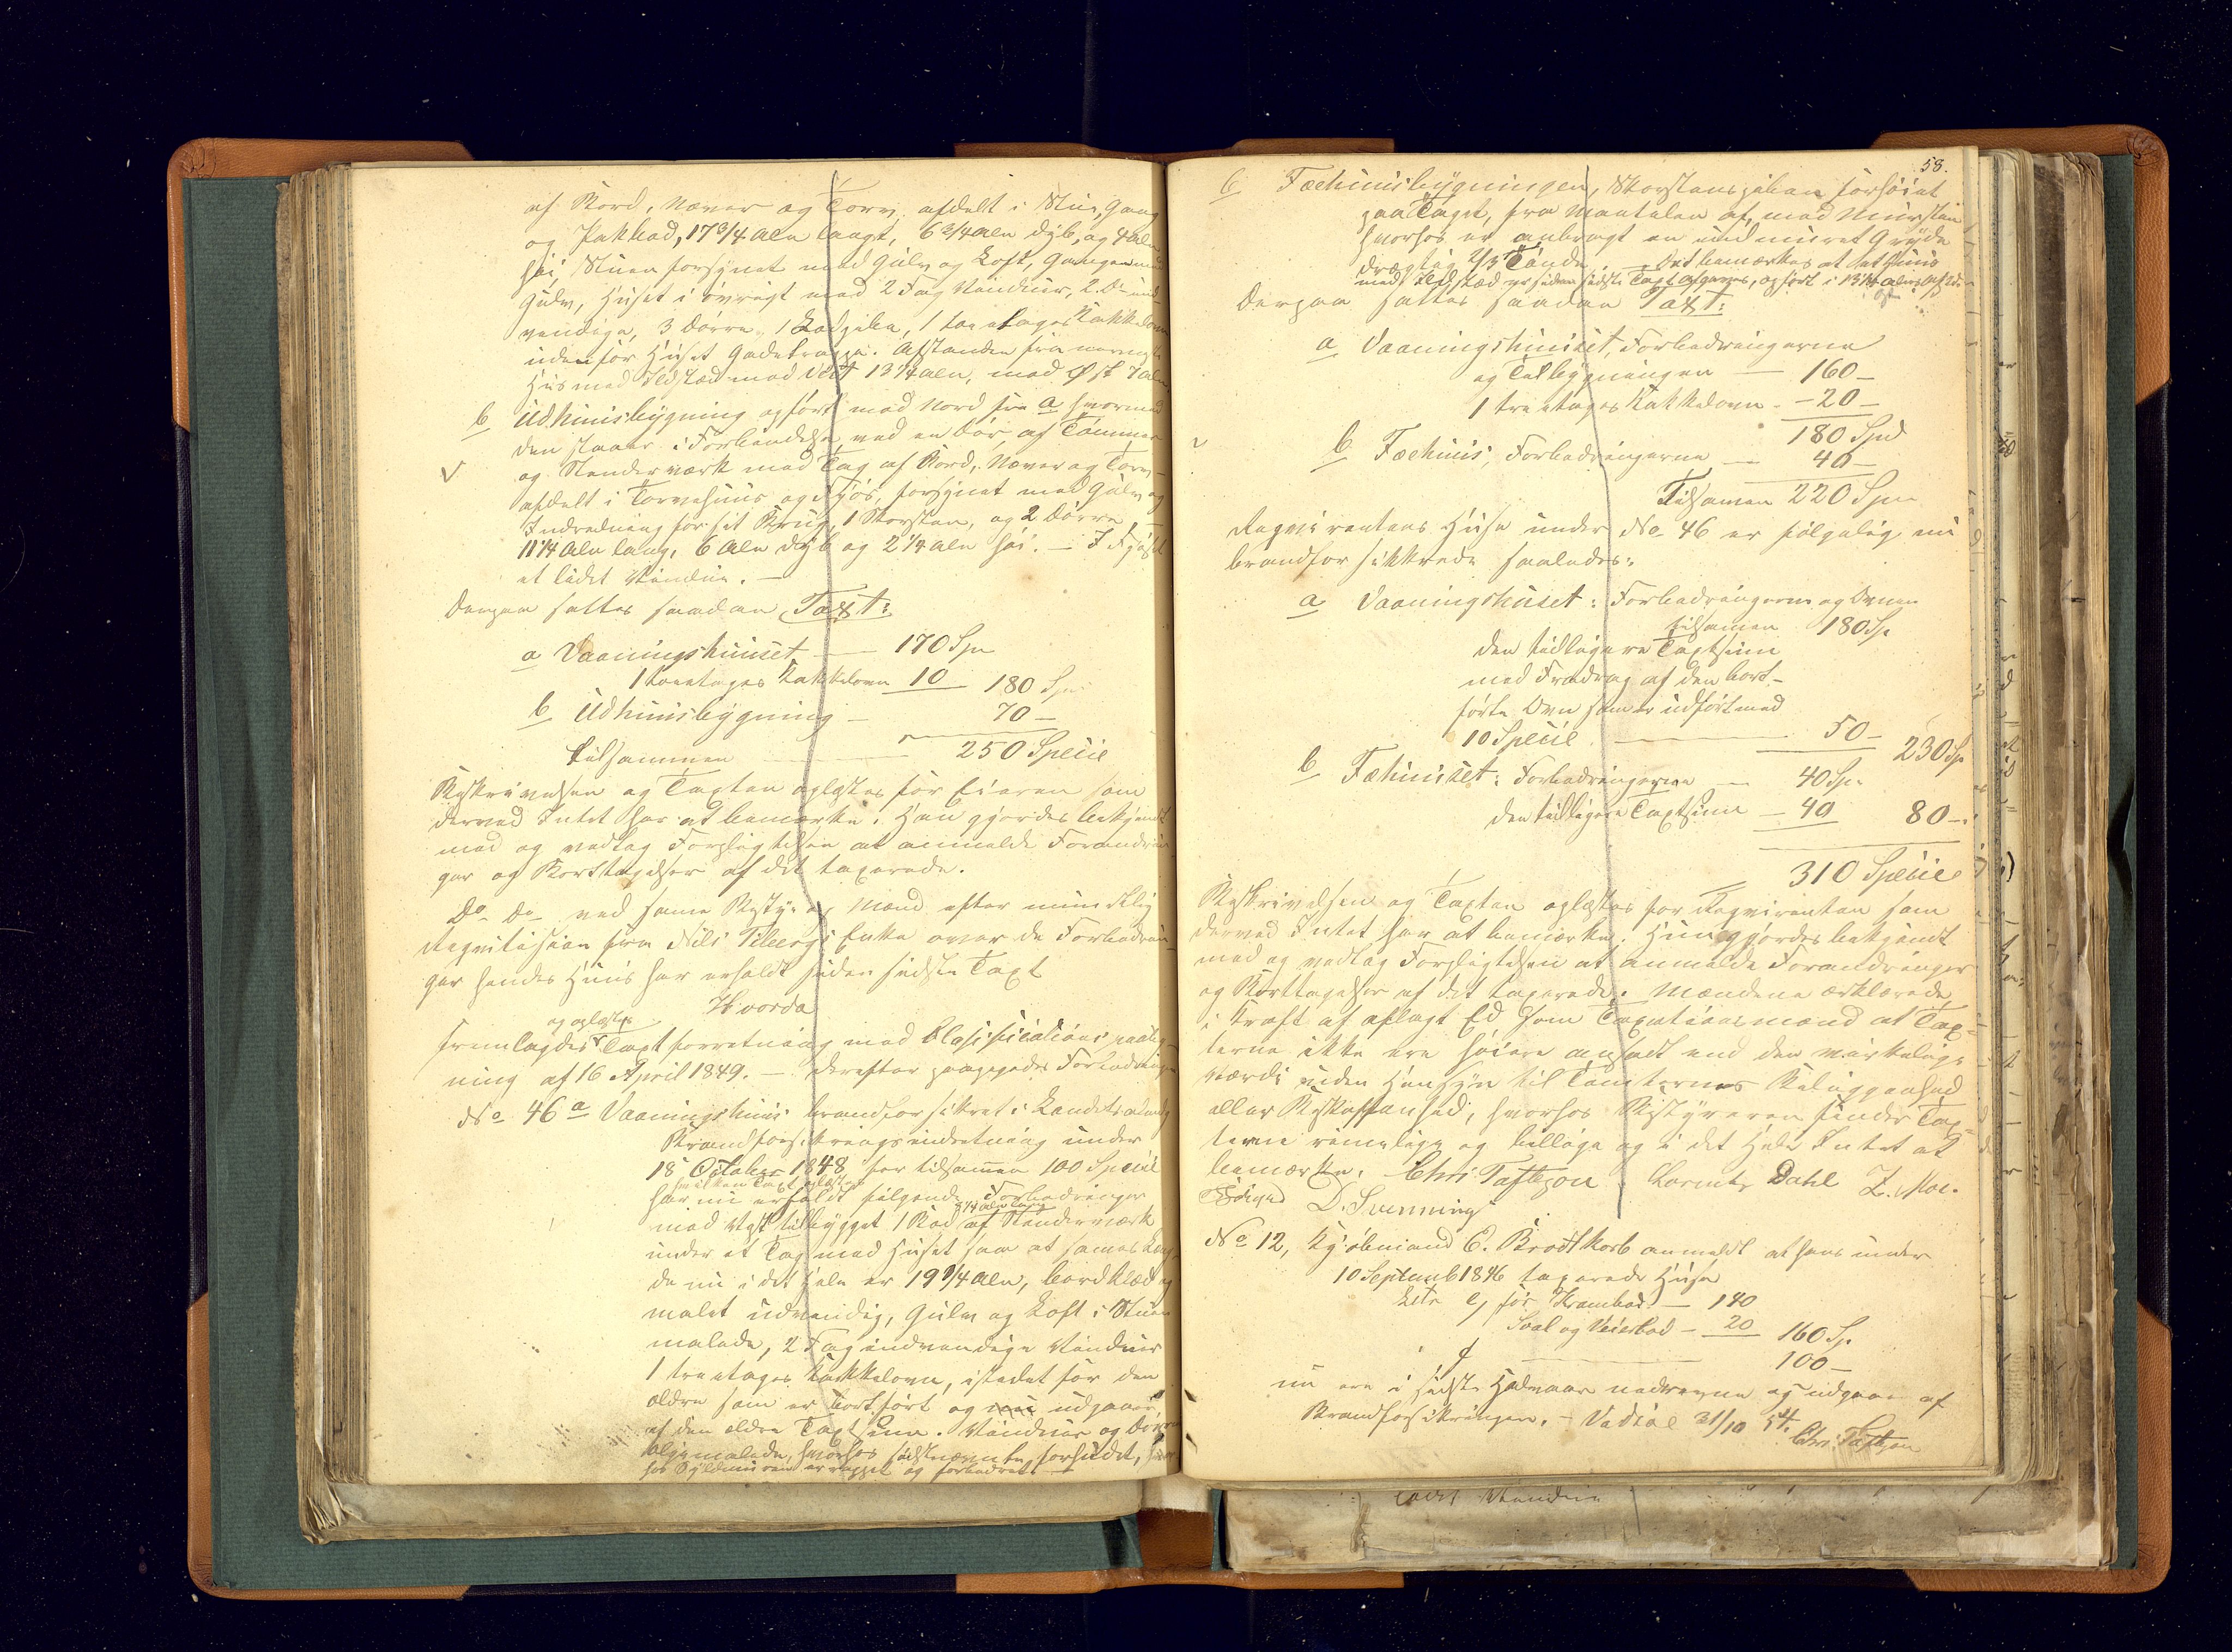 af Bord, Næver og Torv, afdelt i Stue, Gang
og Pakbod, 17 3/4 Alen langt, 6 3/4 Alen dyb, og 4 Alen
høi, Stuen forsynet med Gulv og Loft, Gangen med
Gulv, Huset i øvrigt med 2 Fag Vinduer, 2 Do ind
vendige, 3 Dørre, 1 toetages Kakkelovn
udenfor Huset Gadetrappe. Afstanden fra nærmeste
Huus med Ildsted mod Vest 13 1/4 Alen, mod Øst 7 Alen
b Udhuusbygning opført mod Nord fra a hvormed
den staaer i Forbindelse ved en Dør, af Tømmer
og Stenderværk med Tag af Bord, Næver og Torv
afdelt i Torvehuus og Fjøs, forsynet med Gulv og
Indredning for sit Brug, 1 Skorsten, og 2 Dørre,
11 1/4 Alen lang, 6 Alen dyb og 2 1/4 Alen høi. — I Fjøset
et lidet Vindue. —
Derpaa sattes saadan Taxt:
a Vaaningshuuset — 170 Spe
1 toetages Kakkelovn 10 180 Spe
b Udhuusbygning — 70 —
tilsammen — 250 Specie
Beskrivelsen og Taxten oplæstes for Eieren som
derved Intet har at bemærke. Han gjordes bekjendt
med og vedtog Forpligtelsen at anmelde Forandrin
ger og Borttagelser af det taxerede.
Do Do ved samme Bestyr og Mænd efter mundtlig
Requisition fra Nils Pibergs Enke over de Forbedrin
ger hendes Huus har erholdt siden sidste Taxt
Hvorda
og oplæstes
fremlagdes Taxtforretning med Classificationspaateg
ning af 16 April 1849. — Derefter paapegedes Forbedringer
No 46 a Vaaningshuus brandforsikret i Landets almind
Brandforsikringsindretning under
18 October 1848 for tilsammen 100 Specie
hvilken Taxt oplæstes
har nu erholdt følgende Forbedringer
5 1/4 Alen lang
mod Vest tilbygget 1 Bod af Stenderværk
under et Tag med Huset saa at sammes Læng
de nu i det Hele er 19 1/4 Alen, bordklæd og
malet udvendig, Gulv og Loft i Stuen
malede, 2 Fag indvendige Vinduer
1 treetages Kakkelovn, istedet for den
ældre som er bortført og nu udgaaer
af den ældre Taxtsum. Vinduer og Dørre
oljemalede, hvorhos sidstnævnte forsiret,
hos Pyldmuren er rappet og forbedret —
58.
b Fæehuusbygningen, Skorstenspiben forhøiet
paa Taget, fra Mantelen af, med Muursten
hvorhos er anbragt en indmuret Gryde
drægtig 2/3 Tønde. — Det bemærkes at et Huus
med Ildsted er siden sidste Taxt opført i 13 1/4 Alens Afstd
Derpaa sattes saadan Taxt:
a Vaaningshuuset, Forbedringerne
og Tilbygningen — 160 —
1 treetages Kakkelovn — 20 —
180 Spd
b Fæehuus, Forbedringerne — 40 —
Tilsamen 220 Spe
Requirentens Huse under No 46 er følgelig nu
brandforsikkrede saaledes:
a Vaaningshuset: Forbedringerne og Ovnen
tilsamen 180 Sp
den tidligere Taxtsum
med Fradrag af den bort-
førte Ovn som er udført med
10 Specie — 50 — 230 Sp
b Fæhuuset: Forbedringerne — 40 Spe
den tidligere Taxtsum — 40 80 —
310 Specie
Beskrivelsen og Taxten oplæstes for Requirenten som
derved Intet har at bemærke. Hun gjordes bekjendt
med og vedtog Forpligtelsen at anmelde Forandringer
og Borttagelser af det taxerede. Mændene erklærede
i Kraft af aflagt Ed som Taxationsmænd at Tax-
terne ikke ere høiere ansadt end den virkelige
Værdi uden Hensyn til Tomternes Beliggenhed
eller Beskaffenhed, hvorhos Bestyreren finder Tax-
terne rimelige og billige og i det Hele Intet at
bemærke. Chr: Taftezon Lorentz Dahl Z. Moe.
D. Svenning
No 12, Kjøbmand C. Brodtkorb anmeldt at hans under
10 Septemb 1846 taxerede Huse
Litr e, for Krambod — 140
Sval og Veierbod — 20 160 Sp.
f — 100 —
nu ere i sidste Halvaar nedrevne og udgaae af
Brandforsikringen. — Vadsøe 31/10 54. Chr. Taftezon
lidet Vindue